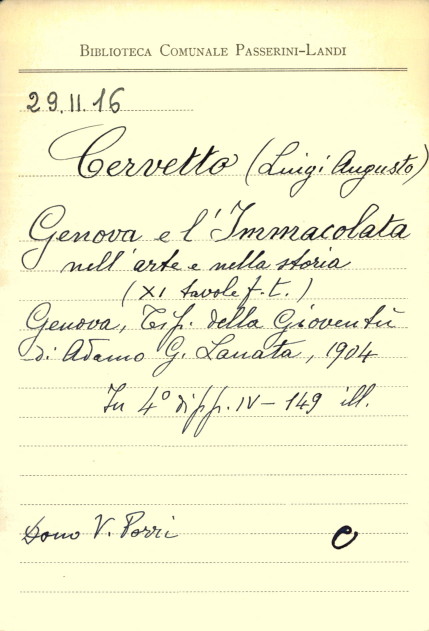 BIBLIOTECA COMUNALE PASSERINI-LANDI
29.II.16
Cervetto (Luigi Augusto)
Genova e l'Immacolata
nell'arte e nella storia
(XI tavole f.t.)
Genova, Tip. della Gioventù
di Adamo G. Lanata, 1904
In 4° di pp. IV-149 ill.
Dono V. Porri
C